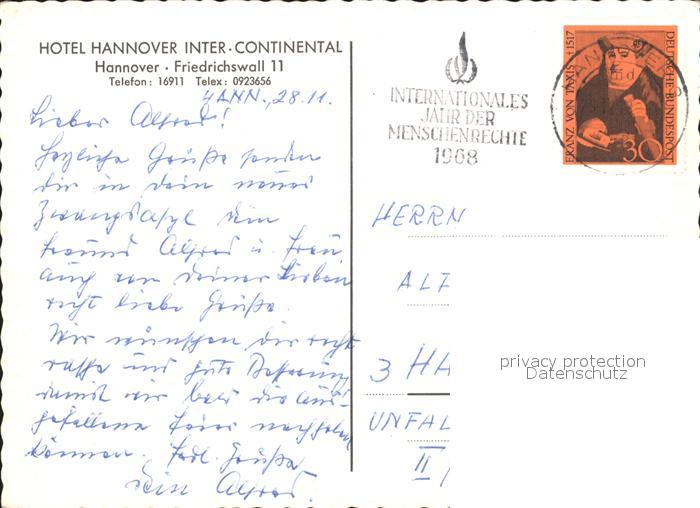 HOTEL HANNOVER INTER·CONTINENTAL
Hannover · Friedrichswall 11
Telefon: 16911 Telex: 0923656
HANN., 28.11.
Lieber Alfred!
Herzliche Grüße senden
dir in dein neues
Zwangsasyl dein
Freund Alfred u. Frau,
auch von deiner Lieben
recht liebe Grüße.
Wir wünschen dir recht
rasche und gute Besserung
damit wir bald die aus-
gefallene Feier nachholen
können. Frdl. Grüße
Dein Alfred.
INTERNATIONALES
JAHR DER
MENSCHENRECHTE
1968
FRANZ VON TAXIS +1517
DEUTSCHE BUNDESPOST
30
HERRN
ALF
3 HA
UNFAL
II
privacy protection
Datenschutz